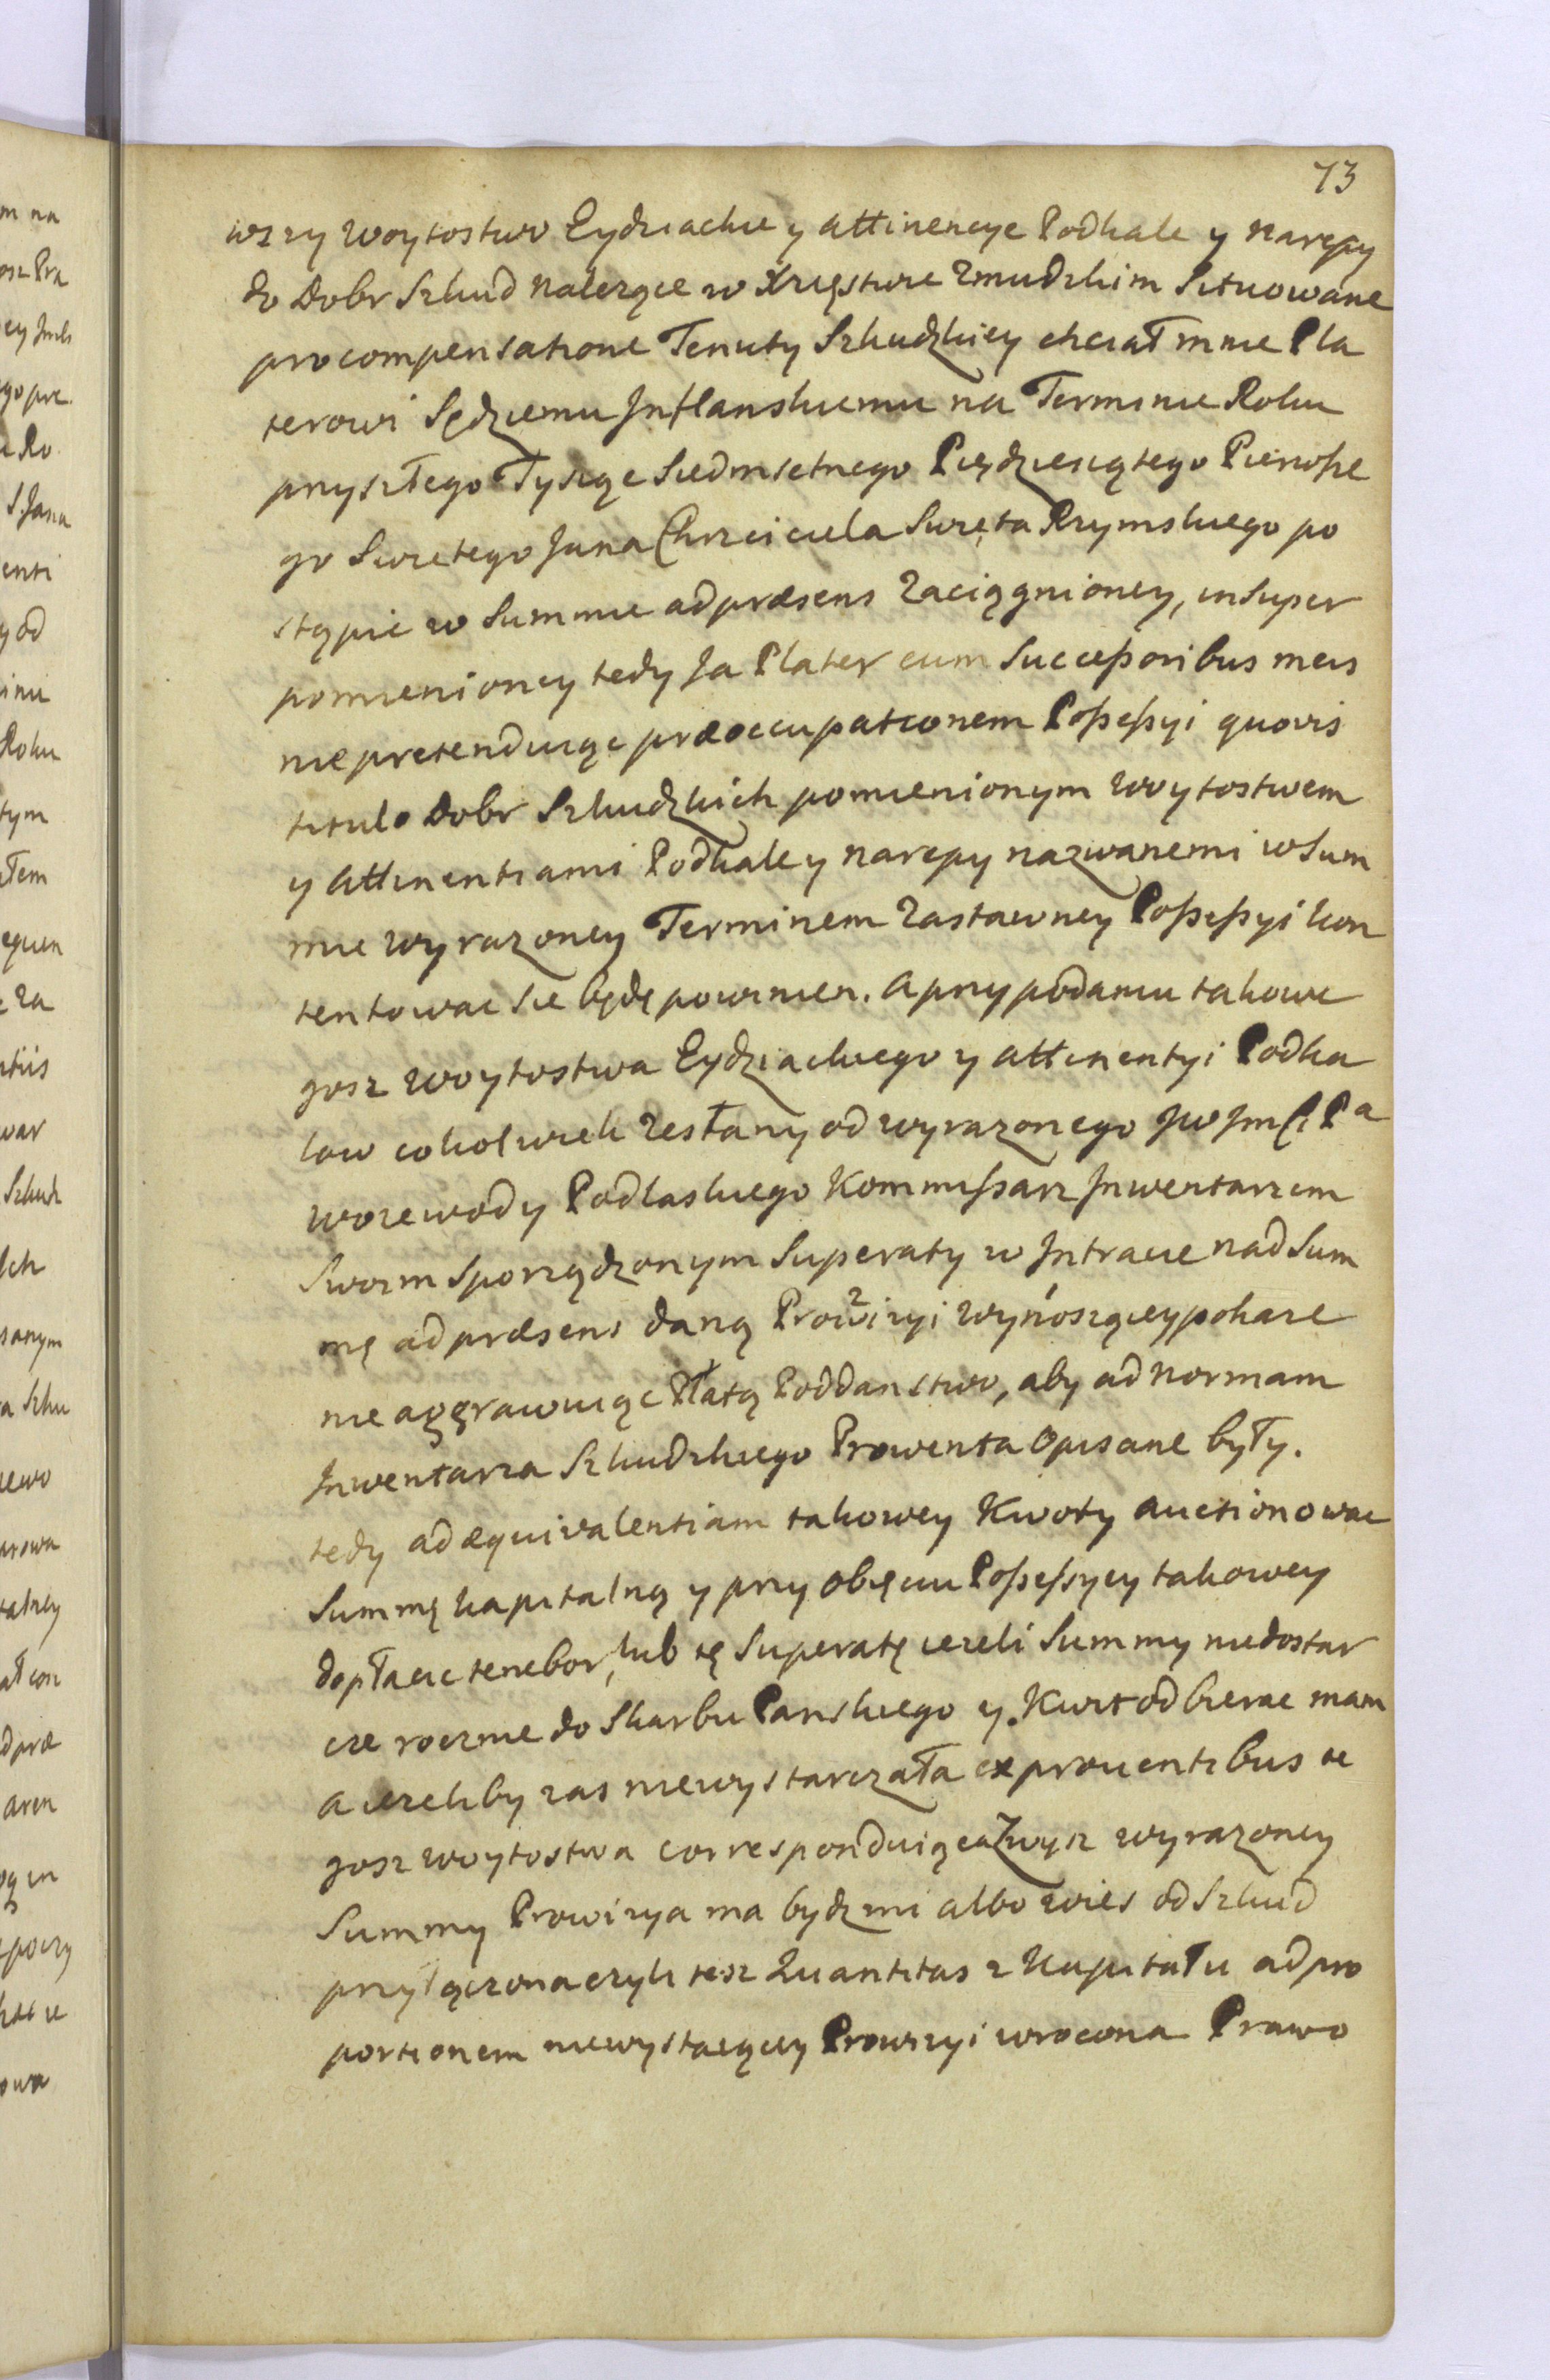 73
wszy Woytostwo Eydziackie y attinencye Podkale y Narepy
do Dobr Szkud Nalezące w Xręstwie Zmudzkim Situowane
pro compensatione Tenuty Szkudzkiey chciał mnie Pla
terowi Sędziemu Inflanskiemu na Terminie Roku
przyszłego Tysiąc Siedmsetnego Pięcdziesiątego Pierwsze
go Swietego Jana Chrzciciela Swięta Rzymskiego po
stąpic w Summie ad præsens Zaciągnioney, in super
pomienioney tedy Ja Plater cum Successoribus meis
nie pretenduiąc præoccupationem Possessyi quovis
titulo Dobr Szkudzkich pomienionym Woytostwem
y Attinentiami Podkale y Narepy nazwanemi w Sum
mie wyrazoney Terminem Zastawney Possessyi kon
tentowac sie będę powinien. A przy podaniu takowe
gosz Woytostwa Eydziackiego y Attinentyi Podka
low cokolwiek Zesłany od wyrazonego JW Jmci Pa
Woiewody Podlaskiego Kommissarz Inwentarzem
Swoim Sporządzonym Superaty w Intracie nad Sum
mę ad præsens daną Prowizyi wynoszącey pokaze
nie aggrawuiąc Płatą Poddanstwo, aby ad normam
Inwentarza Szkudzkiego Prowenta Opisane były.
tedy ad æquivalentiam takowey Kwoty auctionowac
Summę kapitalną y przy Obięciu Possessyey takowey
dopłacic tenebor, lub tę Superatę iezeli Summy niedostar
cze rocznie do Skarbu Panskiego y Kwit odbierac mam
a iezeliby zas niewystarczała ex proventibus te
gosz Woytostwa corresponduiąca Zwysz wyrazoney
Summy Prowizya ma bydz mi albo wies od Szkud
przyłączona czyli tesz Quantitas z Kapitału ad pro
portionem niewystaiącey Prowizyi wrocona Prawo